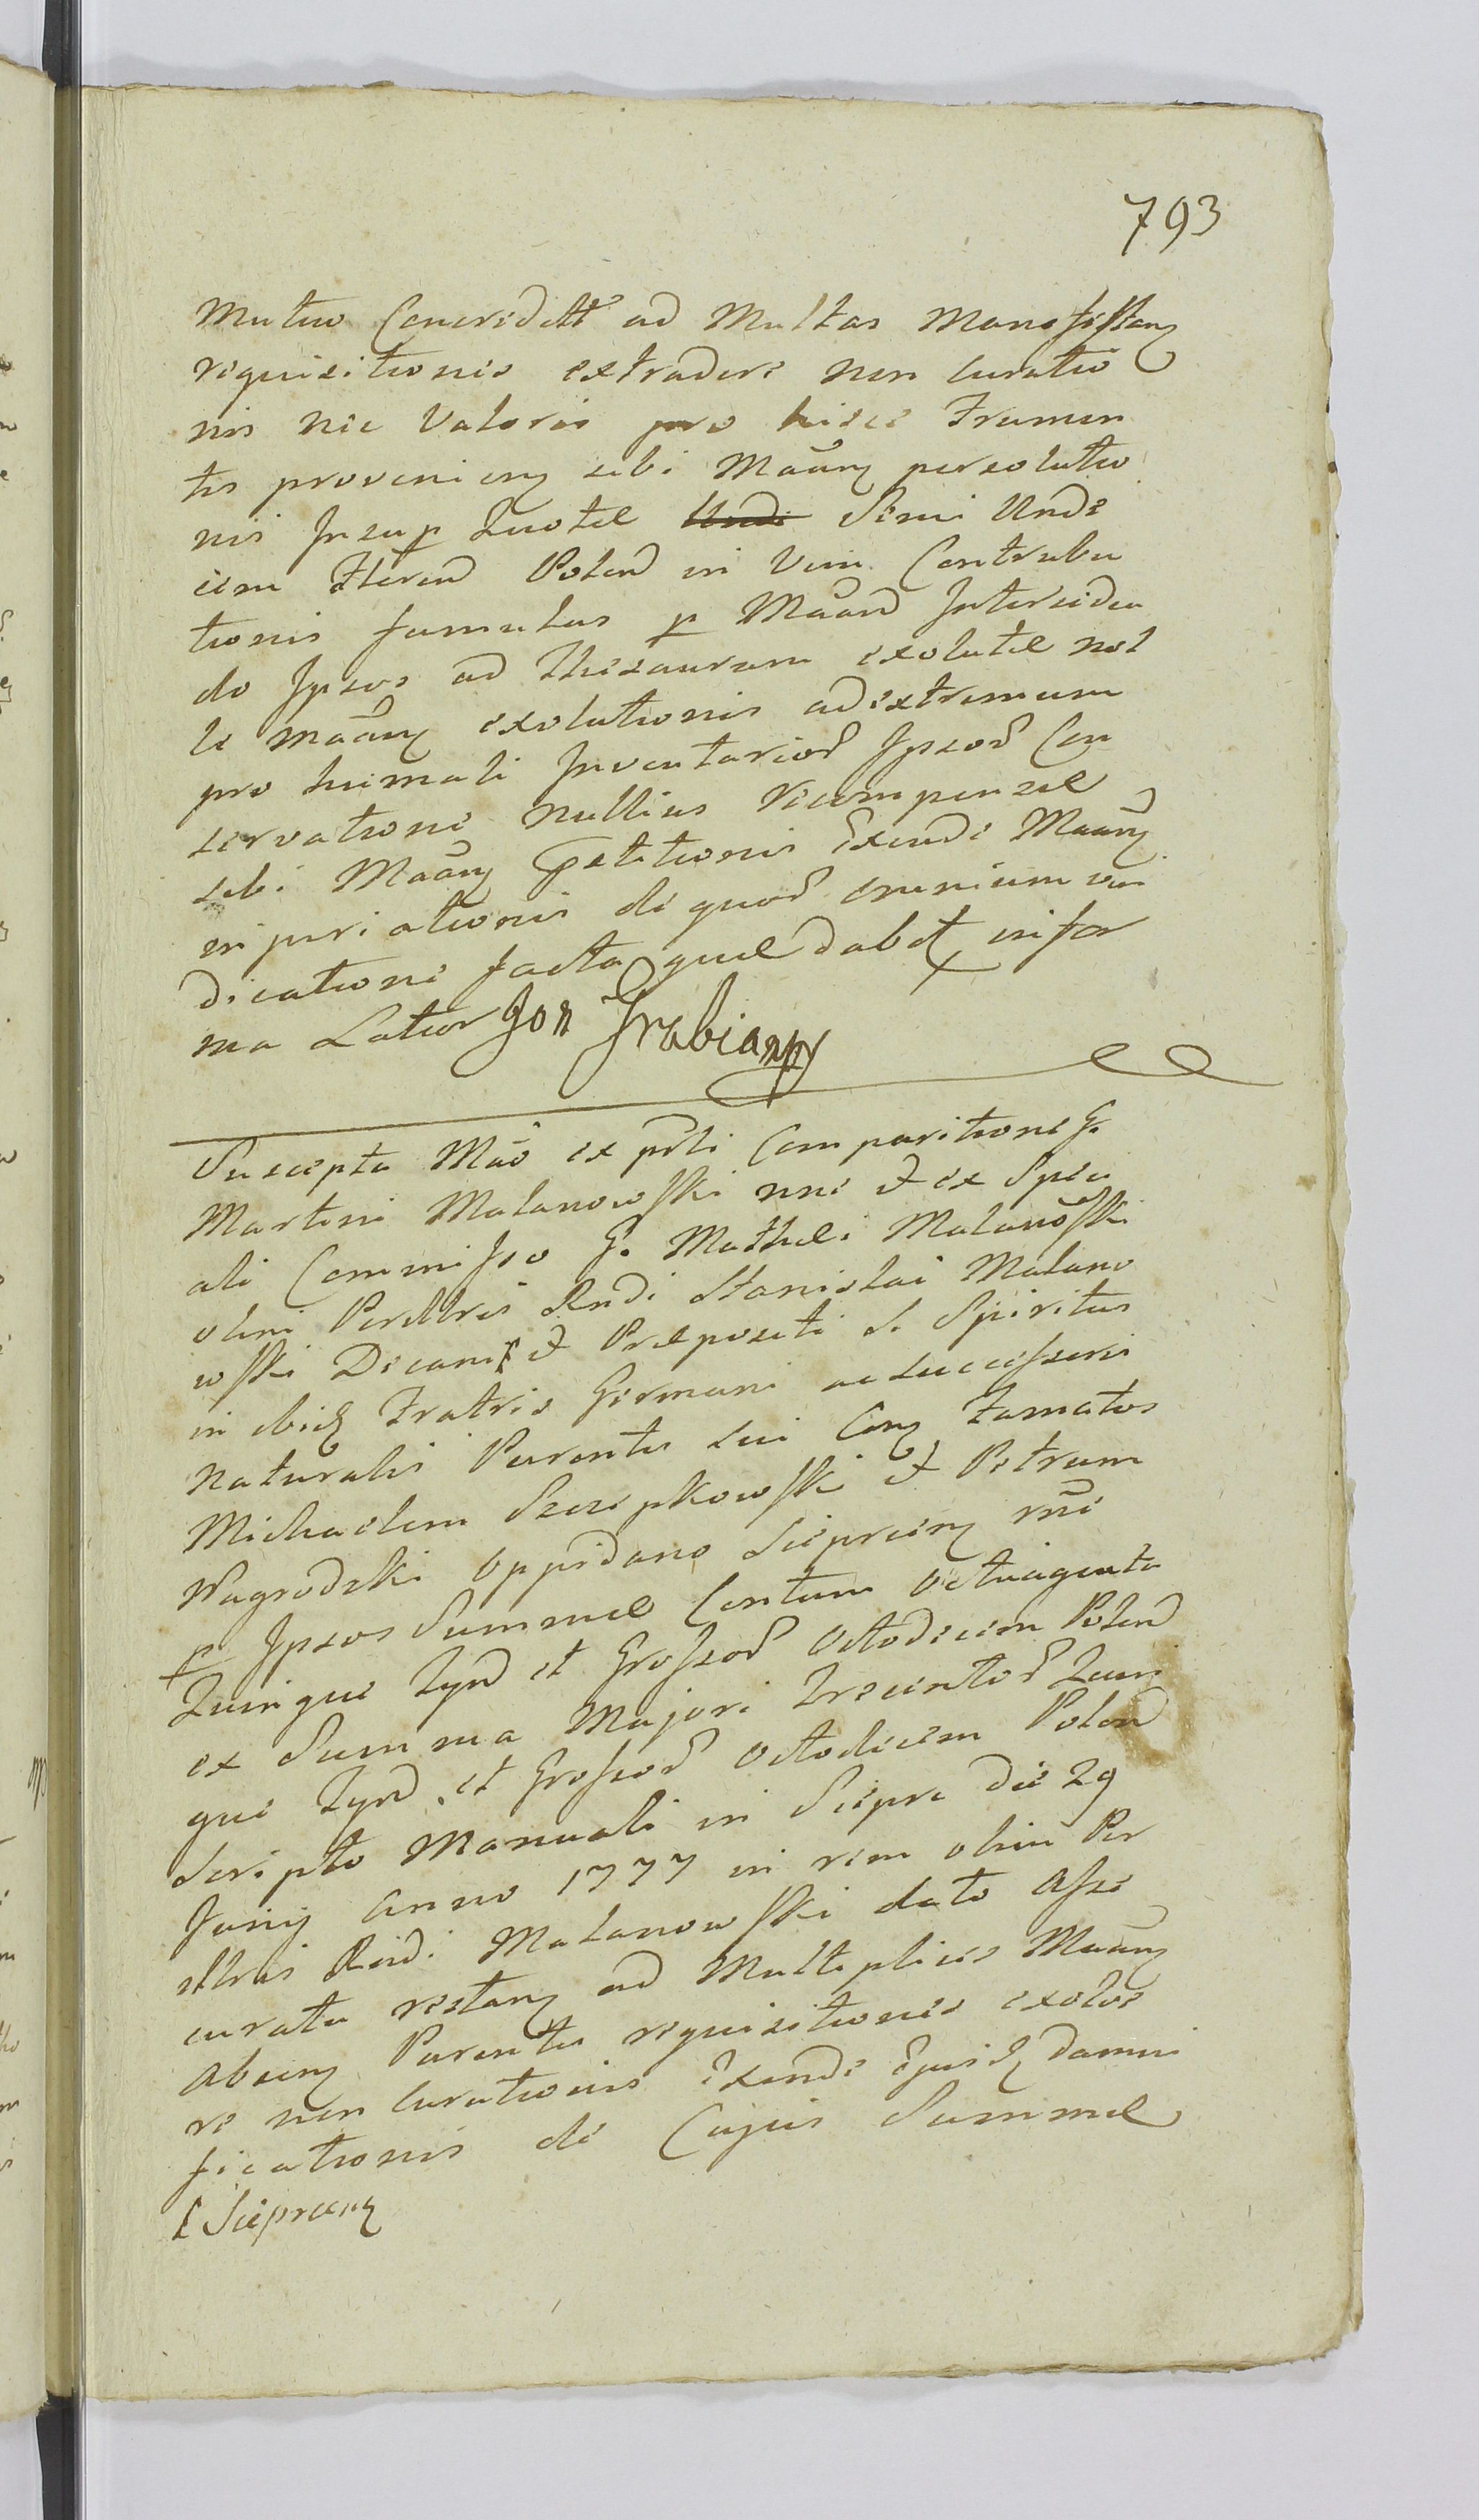 793
Mutuo Concreditt ad Multas Manifestanq
requisitionis extradere non curatio
nis nec Valoris pro hisce Frumen
tis provenienq sibi Maãnq persolutio
nis Insup Quotæ Unde Semi Unde
cim Fleren Polon in Vim Contribu
tionis famulus p Maãn Interciden
do Ipsos ad Thesaurum exolutæ nol
le maãnq exolutionis ad extremum
pro hiemali Inventarior Ipsor Con
servatione nullius Recompensæ
sibi Maãnq Petitionis Exinde Maãnq
injuriationis de quor omnium vin
dicatione facta quæ dabit infor
ma Latior Jan Grabia mp
Suscepta Mão ex psti Comparitione G.
Martini Malanowski nne et ex Speci
ali Commisso G. Mathæi Malanoski
olim Perillris Rndi Stanislai Malano
wski Decani ſ et Præpositi S. Spiritus
in ibidq Fratris Germani ac successoris
naturalis Parentis sui Conq Famatos
Michaelem Szczepkowski et Petrum
Nagrodzki Oppidano Sieprcenq rne
p Ipsos Summæ Centum Octuaginta
Quinque Tynf et Grossor Octodecim Polon
ex Summa Majori Trecentor Quin
que Tynf et Grossor Octodecim Polon
Scripto Manuali in Sieprc die 29
Junij Anno 1777 in rem olim Per
illris Rndi Malanowski dato Asse
curata restanq ad Multiplices Maãnq
Absenq Parentis requisitiones exolve
re non curationis Exinde Ejusdq damni
ficationis de Cujus Summæ
ſ Sieprcenq